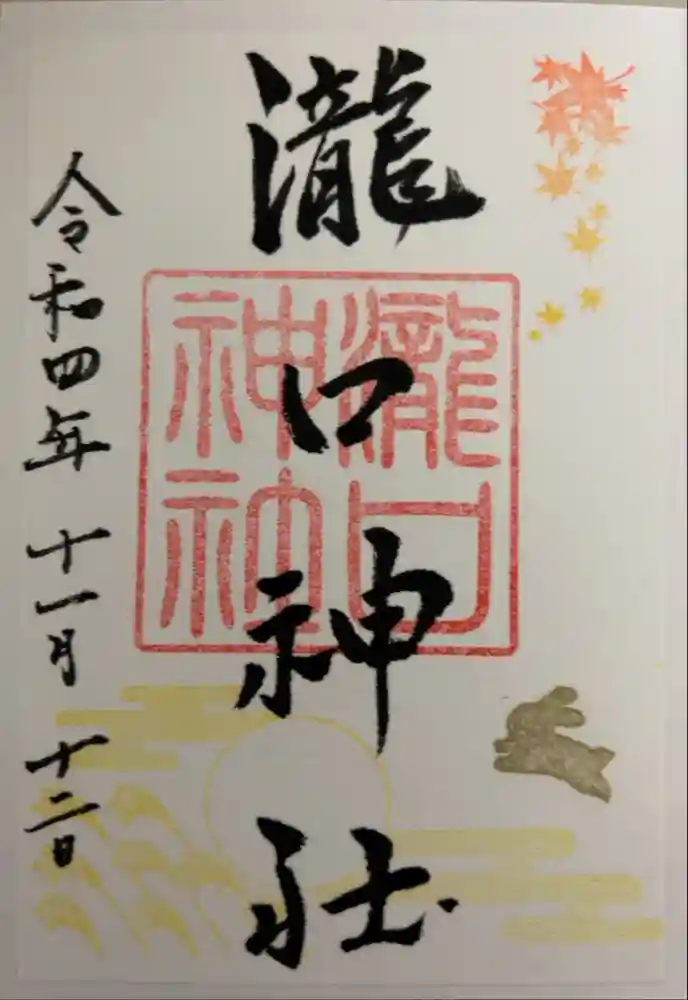 瀧口神社
瀧口
神社
令和四年 十一月 十二日